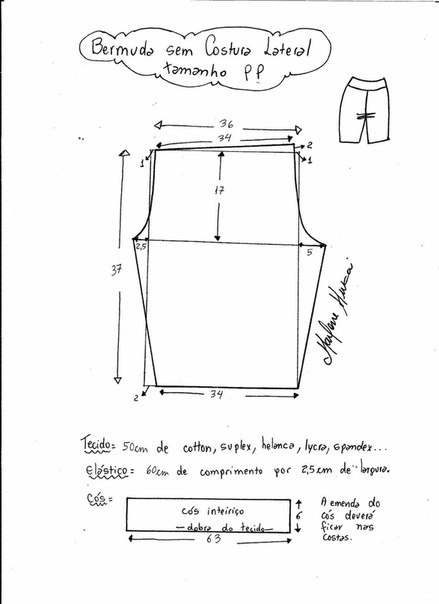 Bermuda sem Costura Lateral
tamanho PP
36
34
2
1
1
17
2,5
5
37
2
34
Marlene Mukai
Tecido= 50cm de cotton, suplex, helanca, lycra, spandex...
Elástico= 60cm de comprimento por 2,5cm de largura.
Cós=
cós inteiriço
dobra do tecido
63
6
A emenda do
cós deverá
ficar nas
costas.